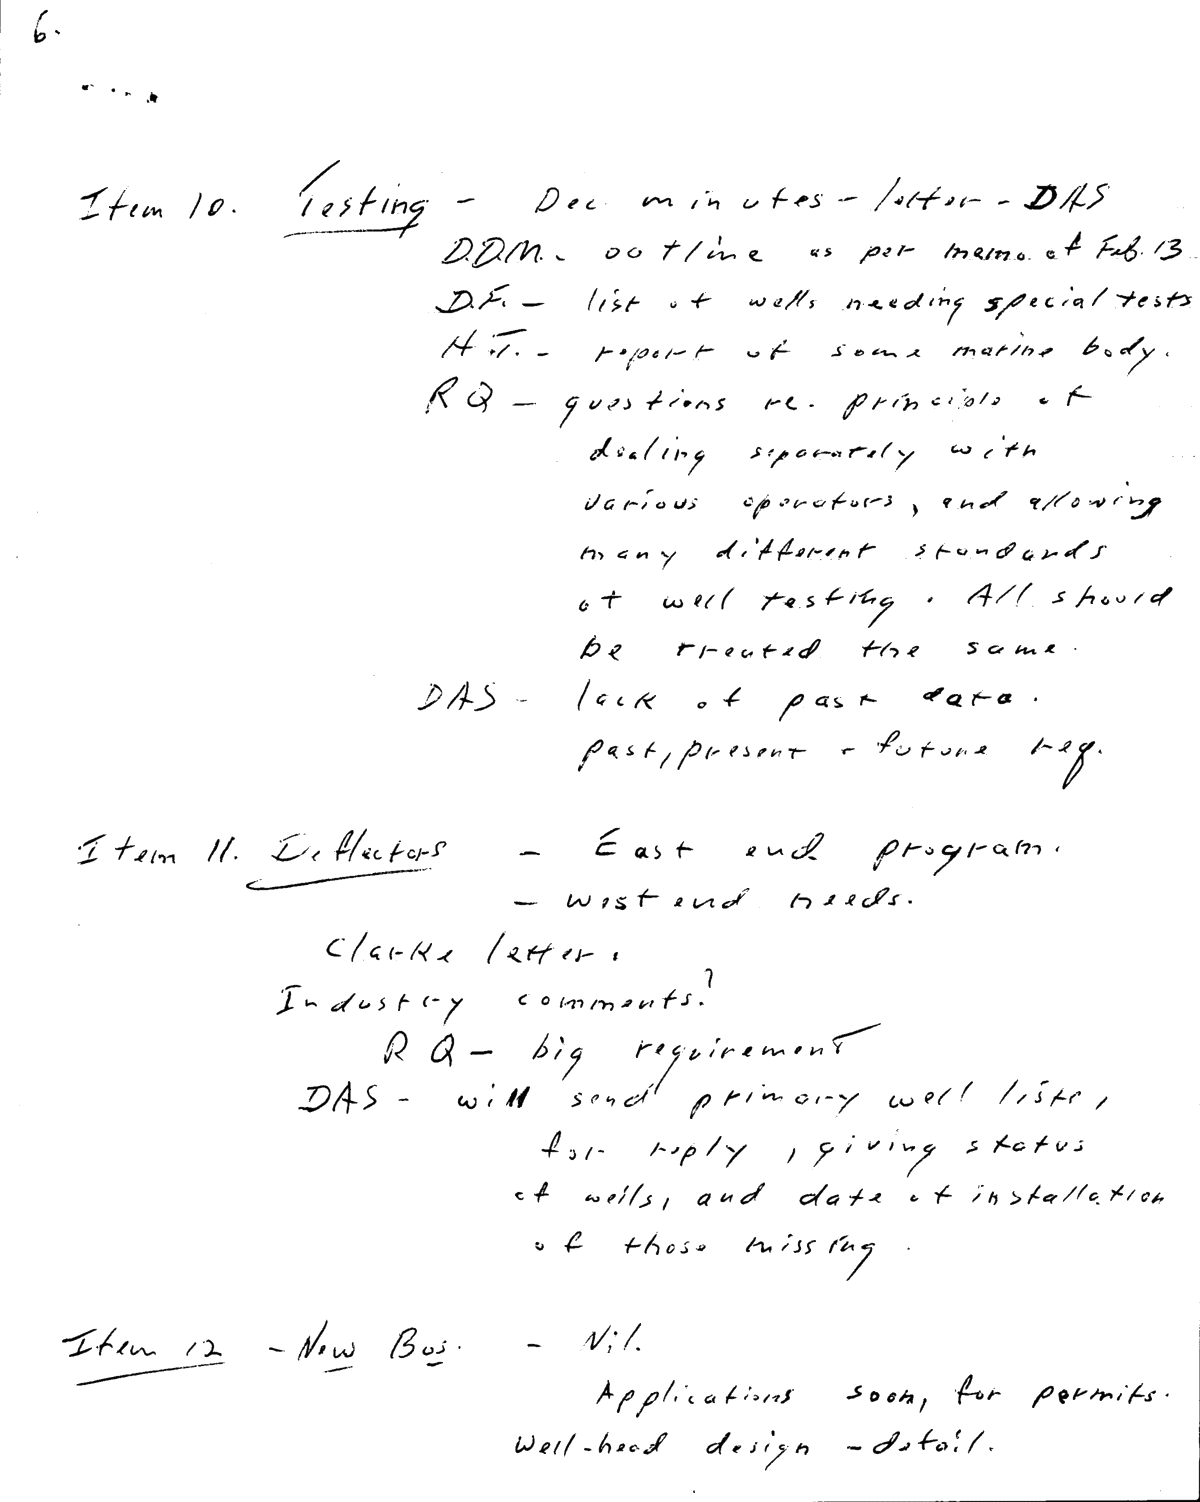 6.
Item 10. Testing - Dec minutes - letter - DAS
D.D.M. - outline as per memo. of Feb. 13
D.F. - list of wells needing special tests
H.T. - report of some marine body.
RQ - questions re. principle of
dealing separately with
various operators, and allowing
many different standards
of well testing. All should
be treated the same.
DAS - lack of past data.
past, present + future req.
Item 11. Deflectors - East end program.
- west end needs.
Clarke letter.
Industry comments?
RQ - big requirement
DAS - will send primary well lists,
for reply, giving status
of wells, and date of installation
of those missing.
Item 12 - New Bus. - Nil.
Applications soon, for permits.
Well-head design - detail.